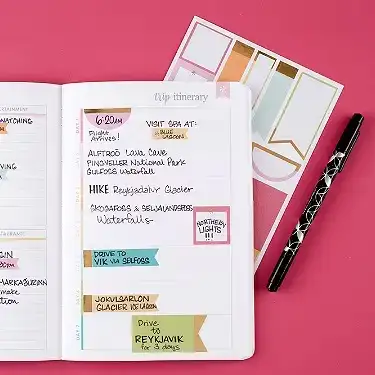 Trip itinerary
6:20AM
Flight
Arrives!
VISIT SPA AT:
BLUE
LAGOON
Lava Cave
PINGVELLER National Park
GULFOSS Waterfall
HIKE Reykjadalur Glacier
& SELJALANDSFOSS
Waterfalls
NORTHERN
LIGHTS
!!!
DRIVE TO
VIK VIA SELFOSS
JOKULSARLON
GLACIER ICE LAGOON
Drive
to
REYKJAVIK
for 3 days
WATCHING
VING
make